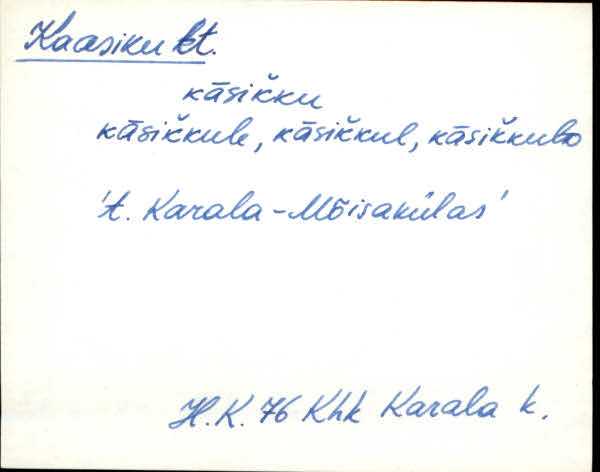 Kaasiku kt.
kāsik̆ku
kāsik̆kule, kāsik̆kul, kāsik̆kult
't. Karala-Mõisakülas'
H. K. 76 Khk Karala k.